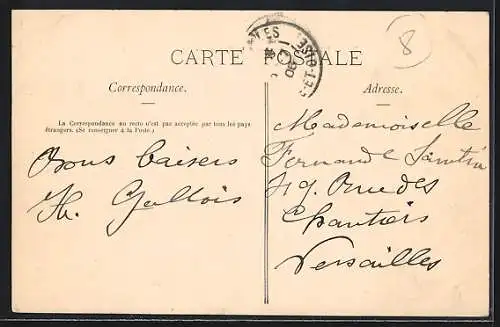 CARTE POSTALE
8
Correspondance.
La Correspondance au recto n'est pas acceptée par tous les pays
étrangers. (Se renseigner à la Poste.)
Bons baisers
H. Gallois
Adresse.
Mademoiselle
Fernande
49. Rue des
Chantiers
Versailles